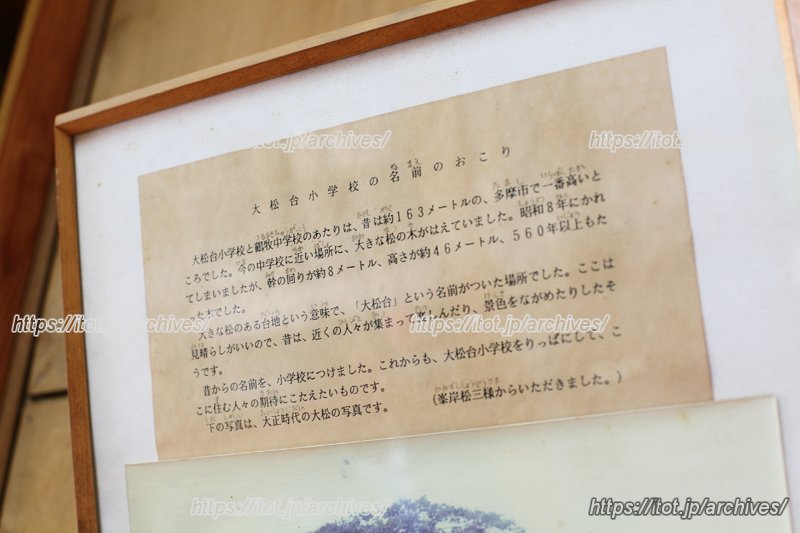 大松台小学校の名前のおこり
大松台小学校と鶴牧中学校のあたりは、昔は約１６３メートルの、多摩市で一番高いと
ころでした。今の中学校に近い場所に、大きな松の木がはえていました。昭和８年にかれ
てしまいましたが、幹の回りが約８メートル、高さが約４６メートル、５６０年以上もた
った木でした。
大きな松のある台地という意味で、「大松台」という名前がついた場所でした。ここは
見晴らしがいいので、昔は、近くの人々が集まって楽しんだり、景色をながめたりしたそ
うです。
昔からの名前を、小学校につけました。これからも、大松台小学校をりっぱにして、こ
こに住む人々の期待にこたえたいものです。
下の写真は、大正時代の大松の写真です。（峯岸松三様からいただきました。）
https://itot.jp/archives/
https://itot.jp/archives/
https://itot.jp/archives/
https://itot.jp/archives/
https://itot.jp/archives/
https://itot.jp/archives/